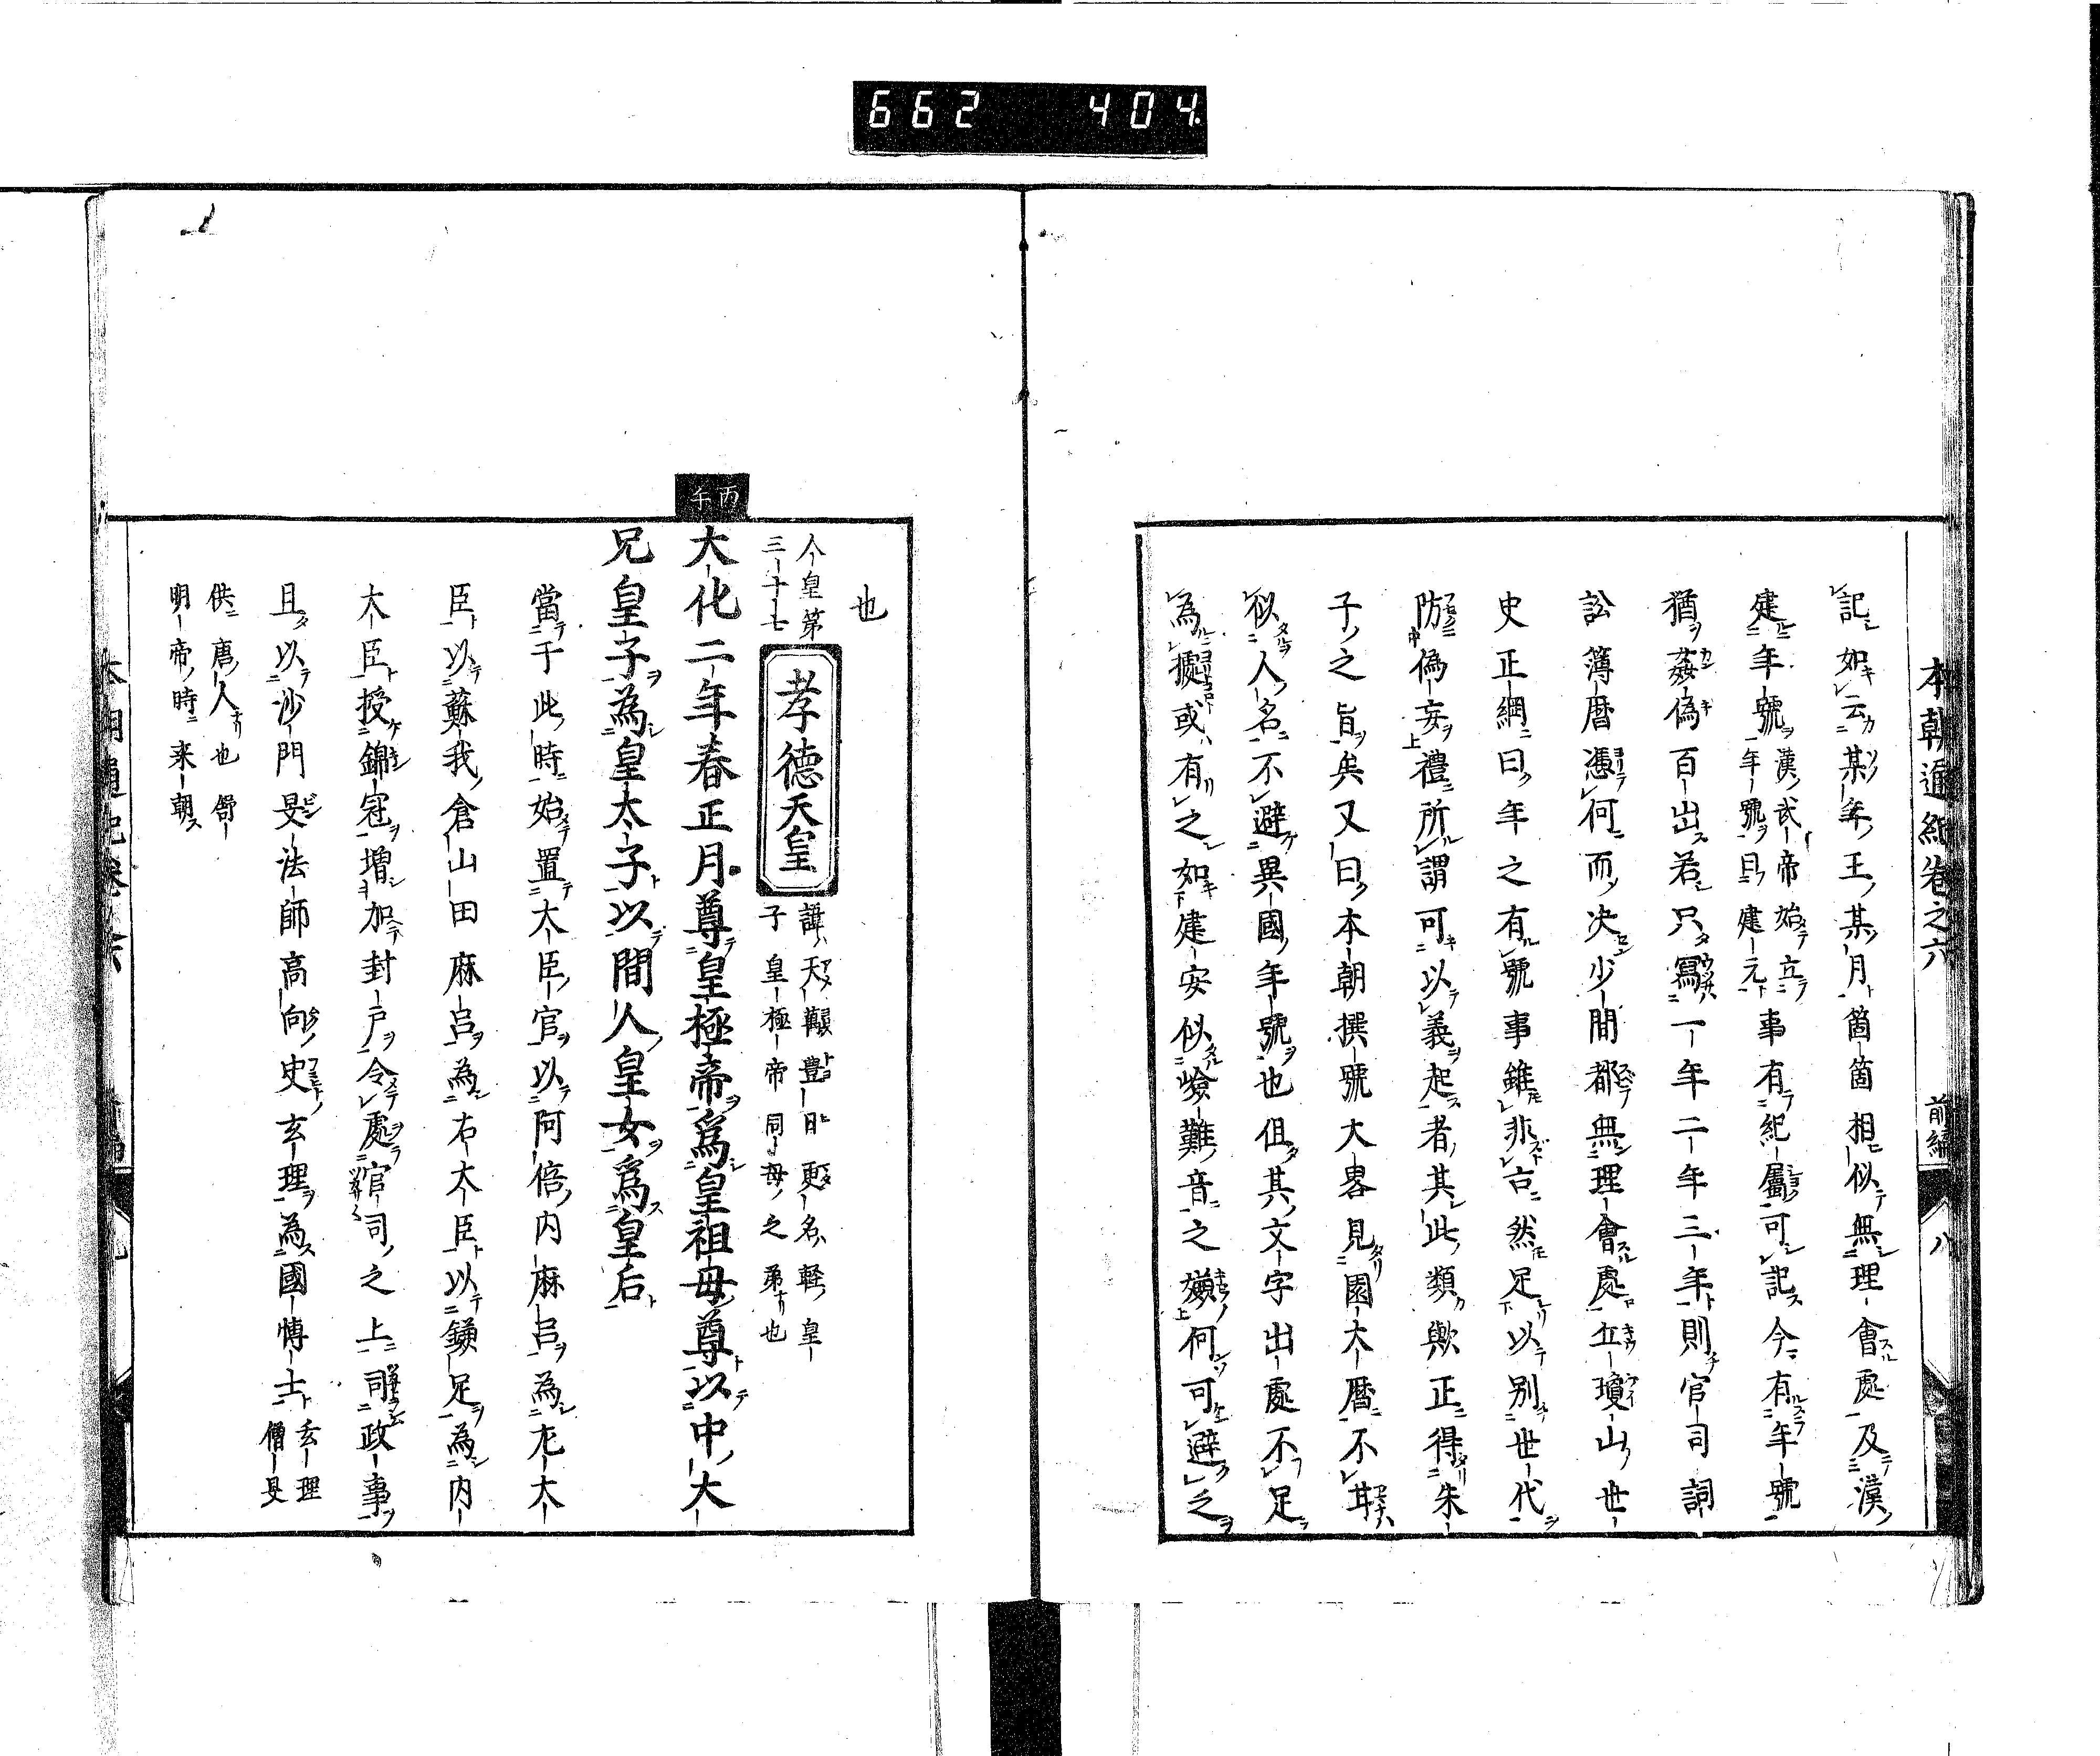 662 404
本朝通紀卷之六 前編 八
記如云某年王某月箇箇相似無理會處及漢
建年號漢武帝始立年號曰建元事有紀屬可記今有年號
猶姦偽百出若只寫一年二年三年則官司詞
訟簿曆憑何而決少間都無理會處丘瓊山世
史正綱曰年之有號事雖非古然足以別世代
防偽妄禮所謂可以義起者其此類歟正得朱
子之旨矣又曰本朝撰號大畧見園太曆不耳
似人名不避異國年號也但其文字出處不足
為據或有之如建安似嶮難音之嫌何可避之
也
人皇第三十七 孝德天皇 諱天觀豊日更名軽皇子皇極帝同母之弟也
丙午
大化二年春正月尊皇極帝為皇祖母尊以中大
兄皇子為皇太子以間人皇女為皇后
當于此時始置大臣官以阿倍内麻呂為左大
臣以蘇我倉山田麻呂為右大臣以鎌足為内
大臣授錦冠增加封戸令處官司之上司政事
且以沙門旻法師高向史玄理為國博士玄理僧旻
供唐人也舒
明帝時来朝